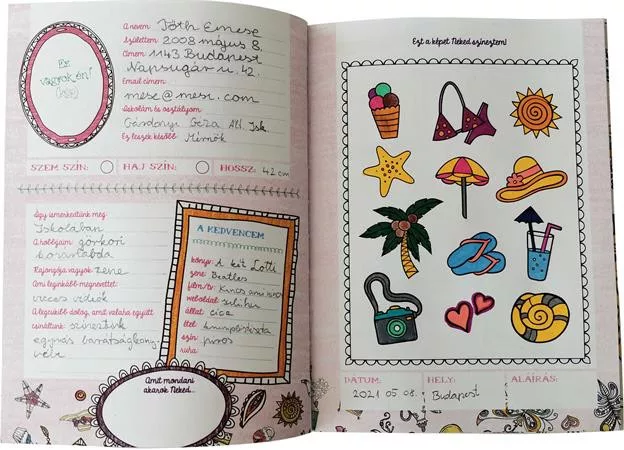 Ez
vagyok én!
A nevem: Tóth Emese
Születtem: 2008 május 8.
Címem: 1143 Budapest
Napsugár u. 42.
Email címem:
mese@mesi.com
Iskolám és osztályom:
Gárdonyi Géza Ált. Isk.
Ez leszek később: Mérnök
SZEM SZÍN: HAJ SZÍN: HOSSZ: 42 cm
Így ismerkedtünk meg:
Iskolában
A hobbijaim: görkori
kosárlabda
Rajongója vagyok: zene
Ami leginkább megnevettet:
vicces videók
A legcikibb dolog, amit valaha együtt
csináltunk: színeztünk
egymás barátságköny-
vébe
A KEDVENCEM
könyv: A két Lotti
zene: Beatles
film/tv: Kincs ami nincs
weboldal:
állat: cica
étel: krumplistészta
szín: piros
ruha:
Amit mondani
akarok Neked...
Ezt a képet Neked színeztem!
DÁTUM: HELY: ALÁÍRÁS:
2021 05 08. Budapest